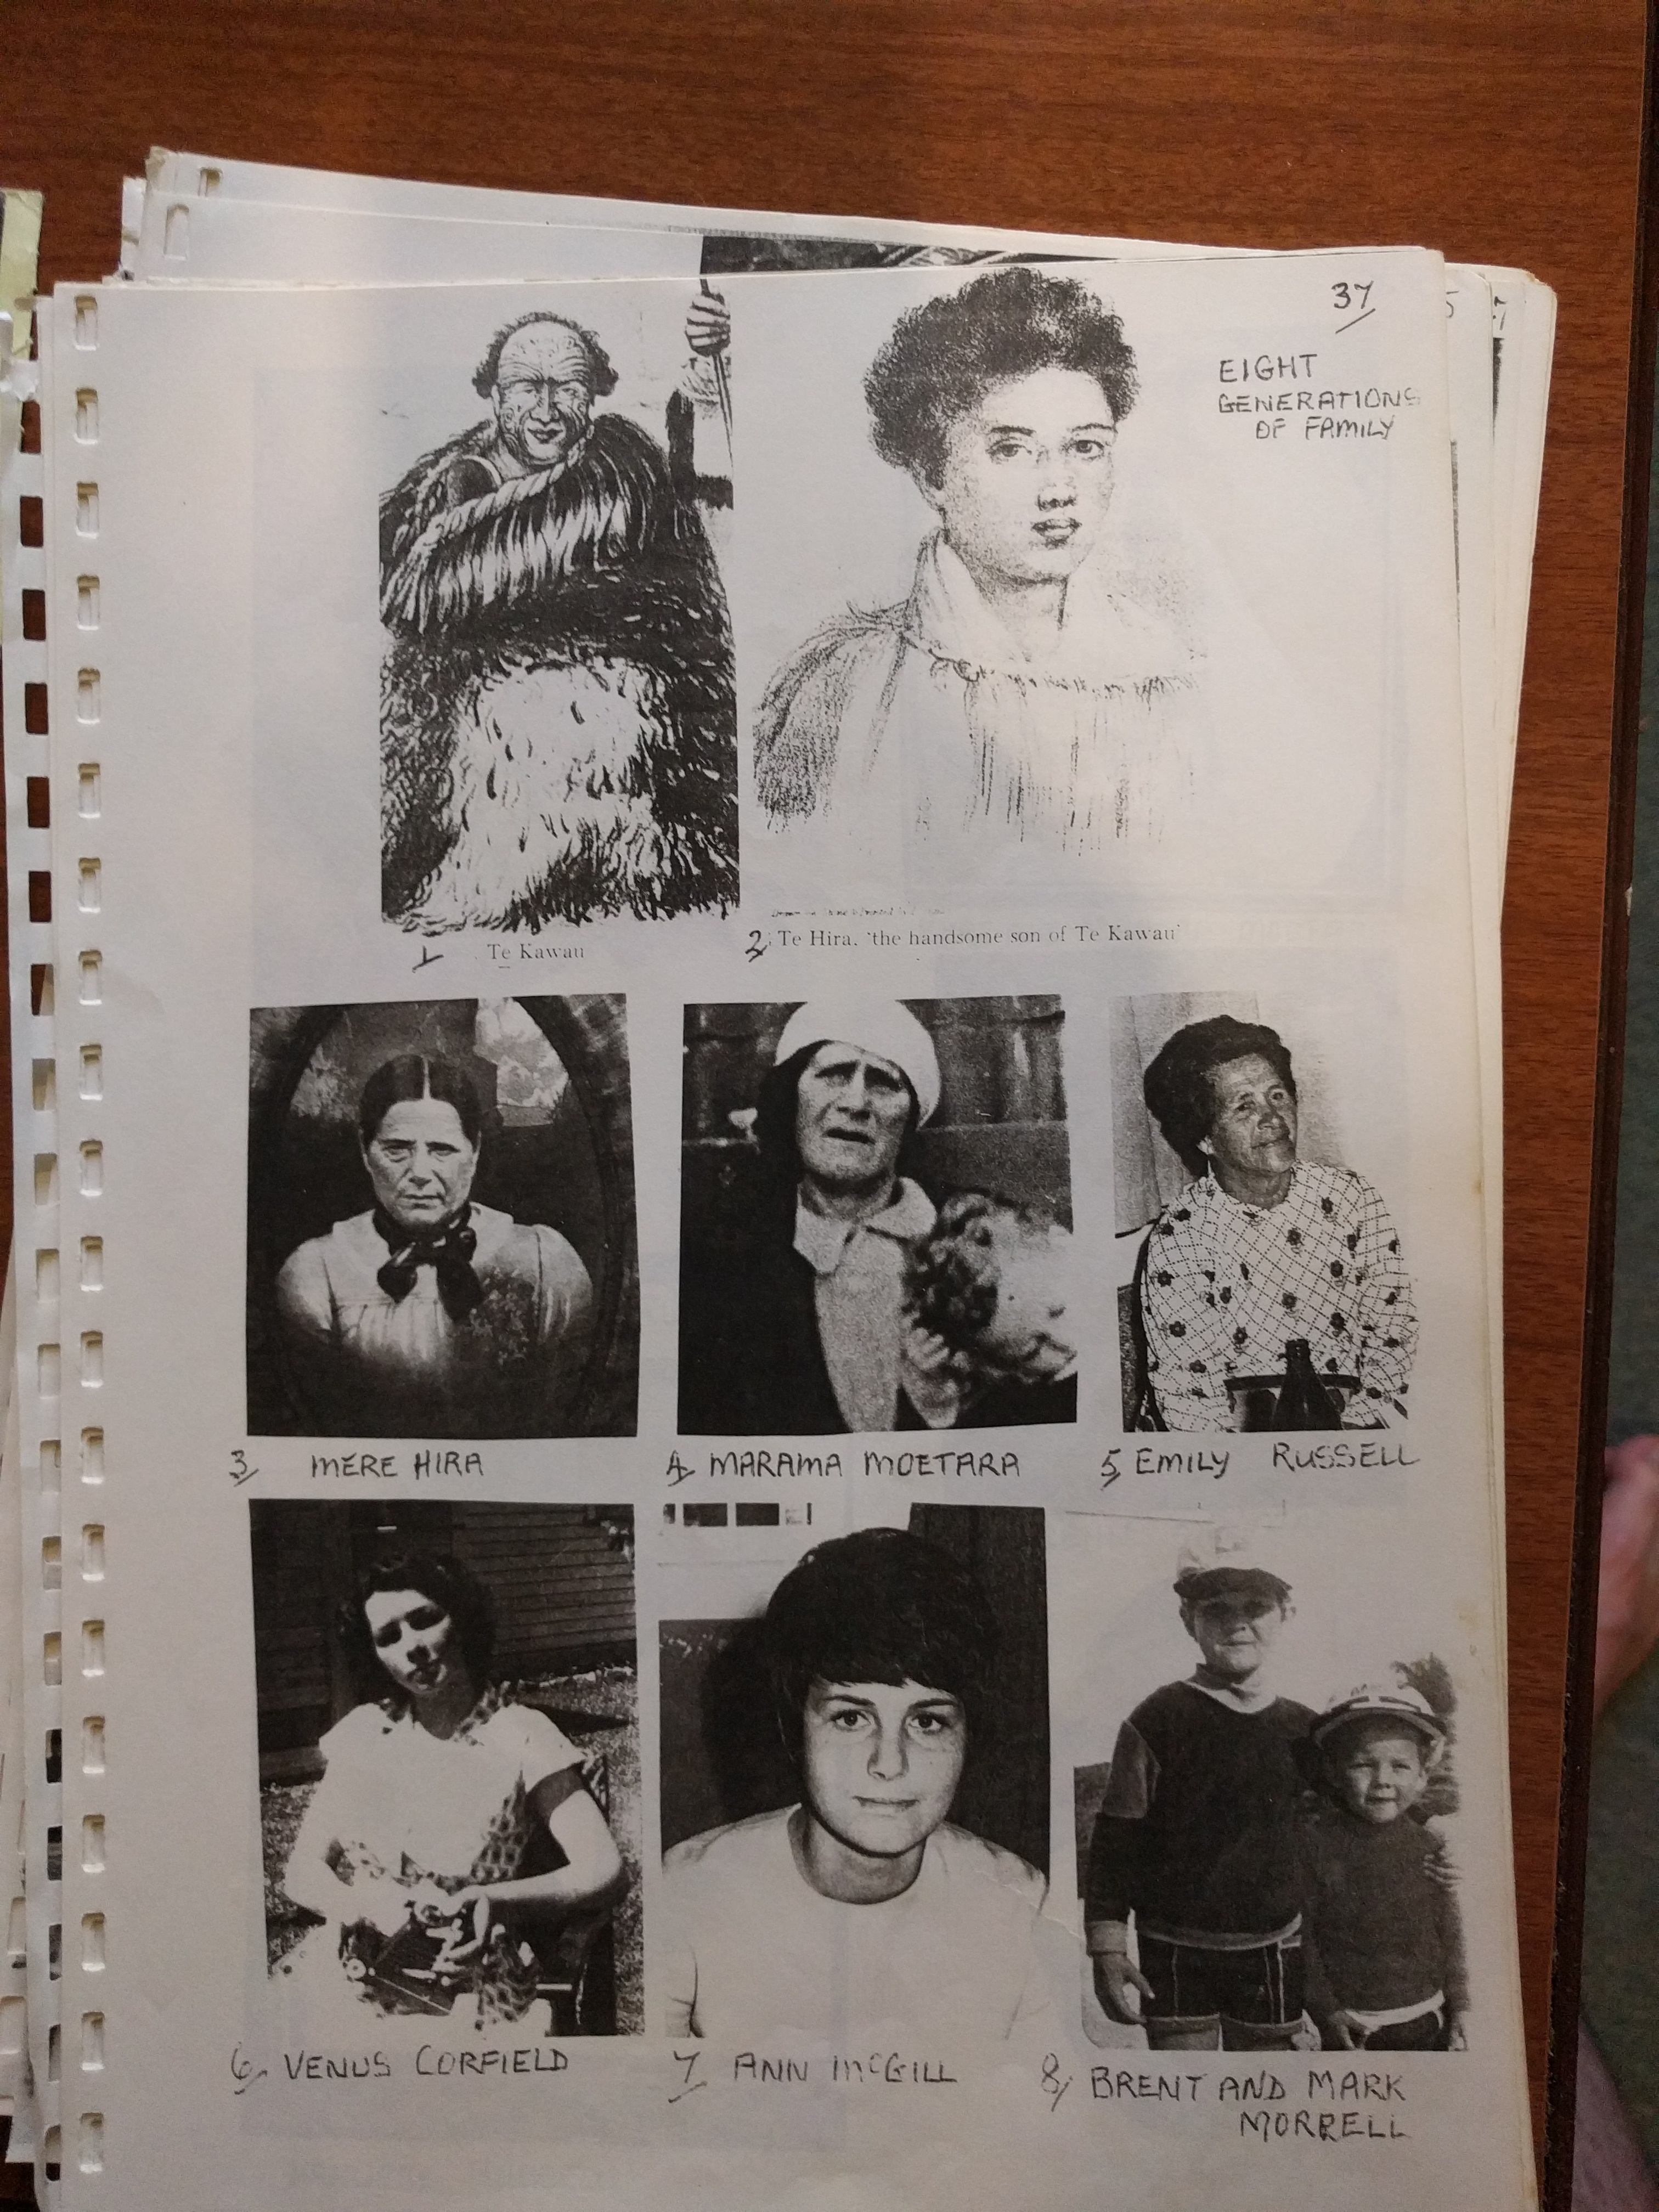 37
EIGHT
GENERATIONS
OF FAMILY
1 Te Kawau
2, Te Hira, 'the handsome son of Te Kawau'
3, MERE HIRA
4, MARAMA MOETARA
5, EMILY RUSSELL
6, VENUS CORFIELD
7, ANN McGILL
8, BRENT AND MARK
MORRELL